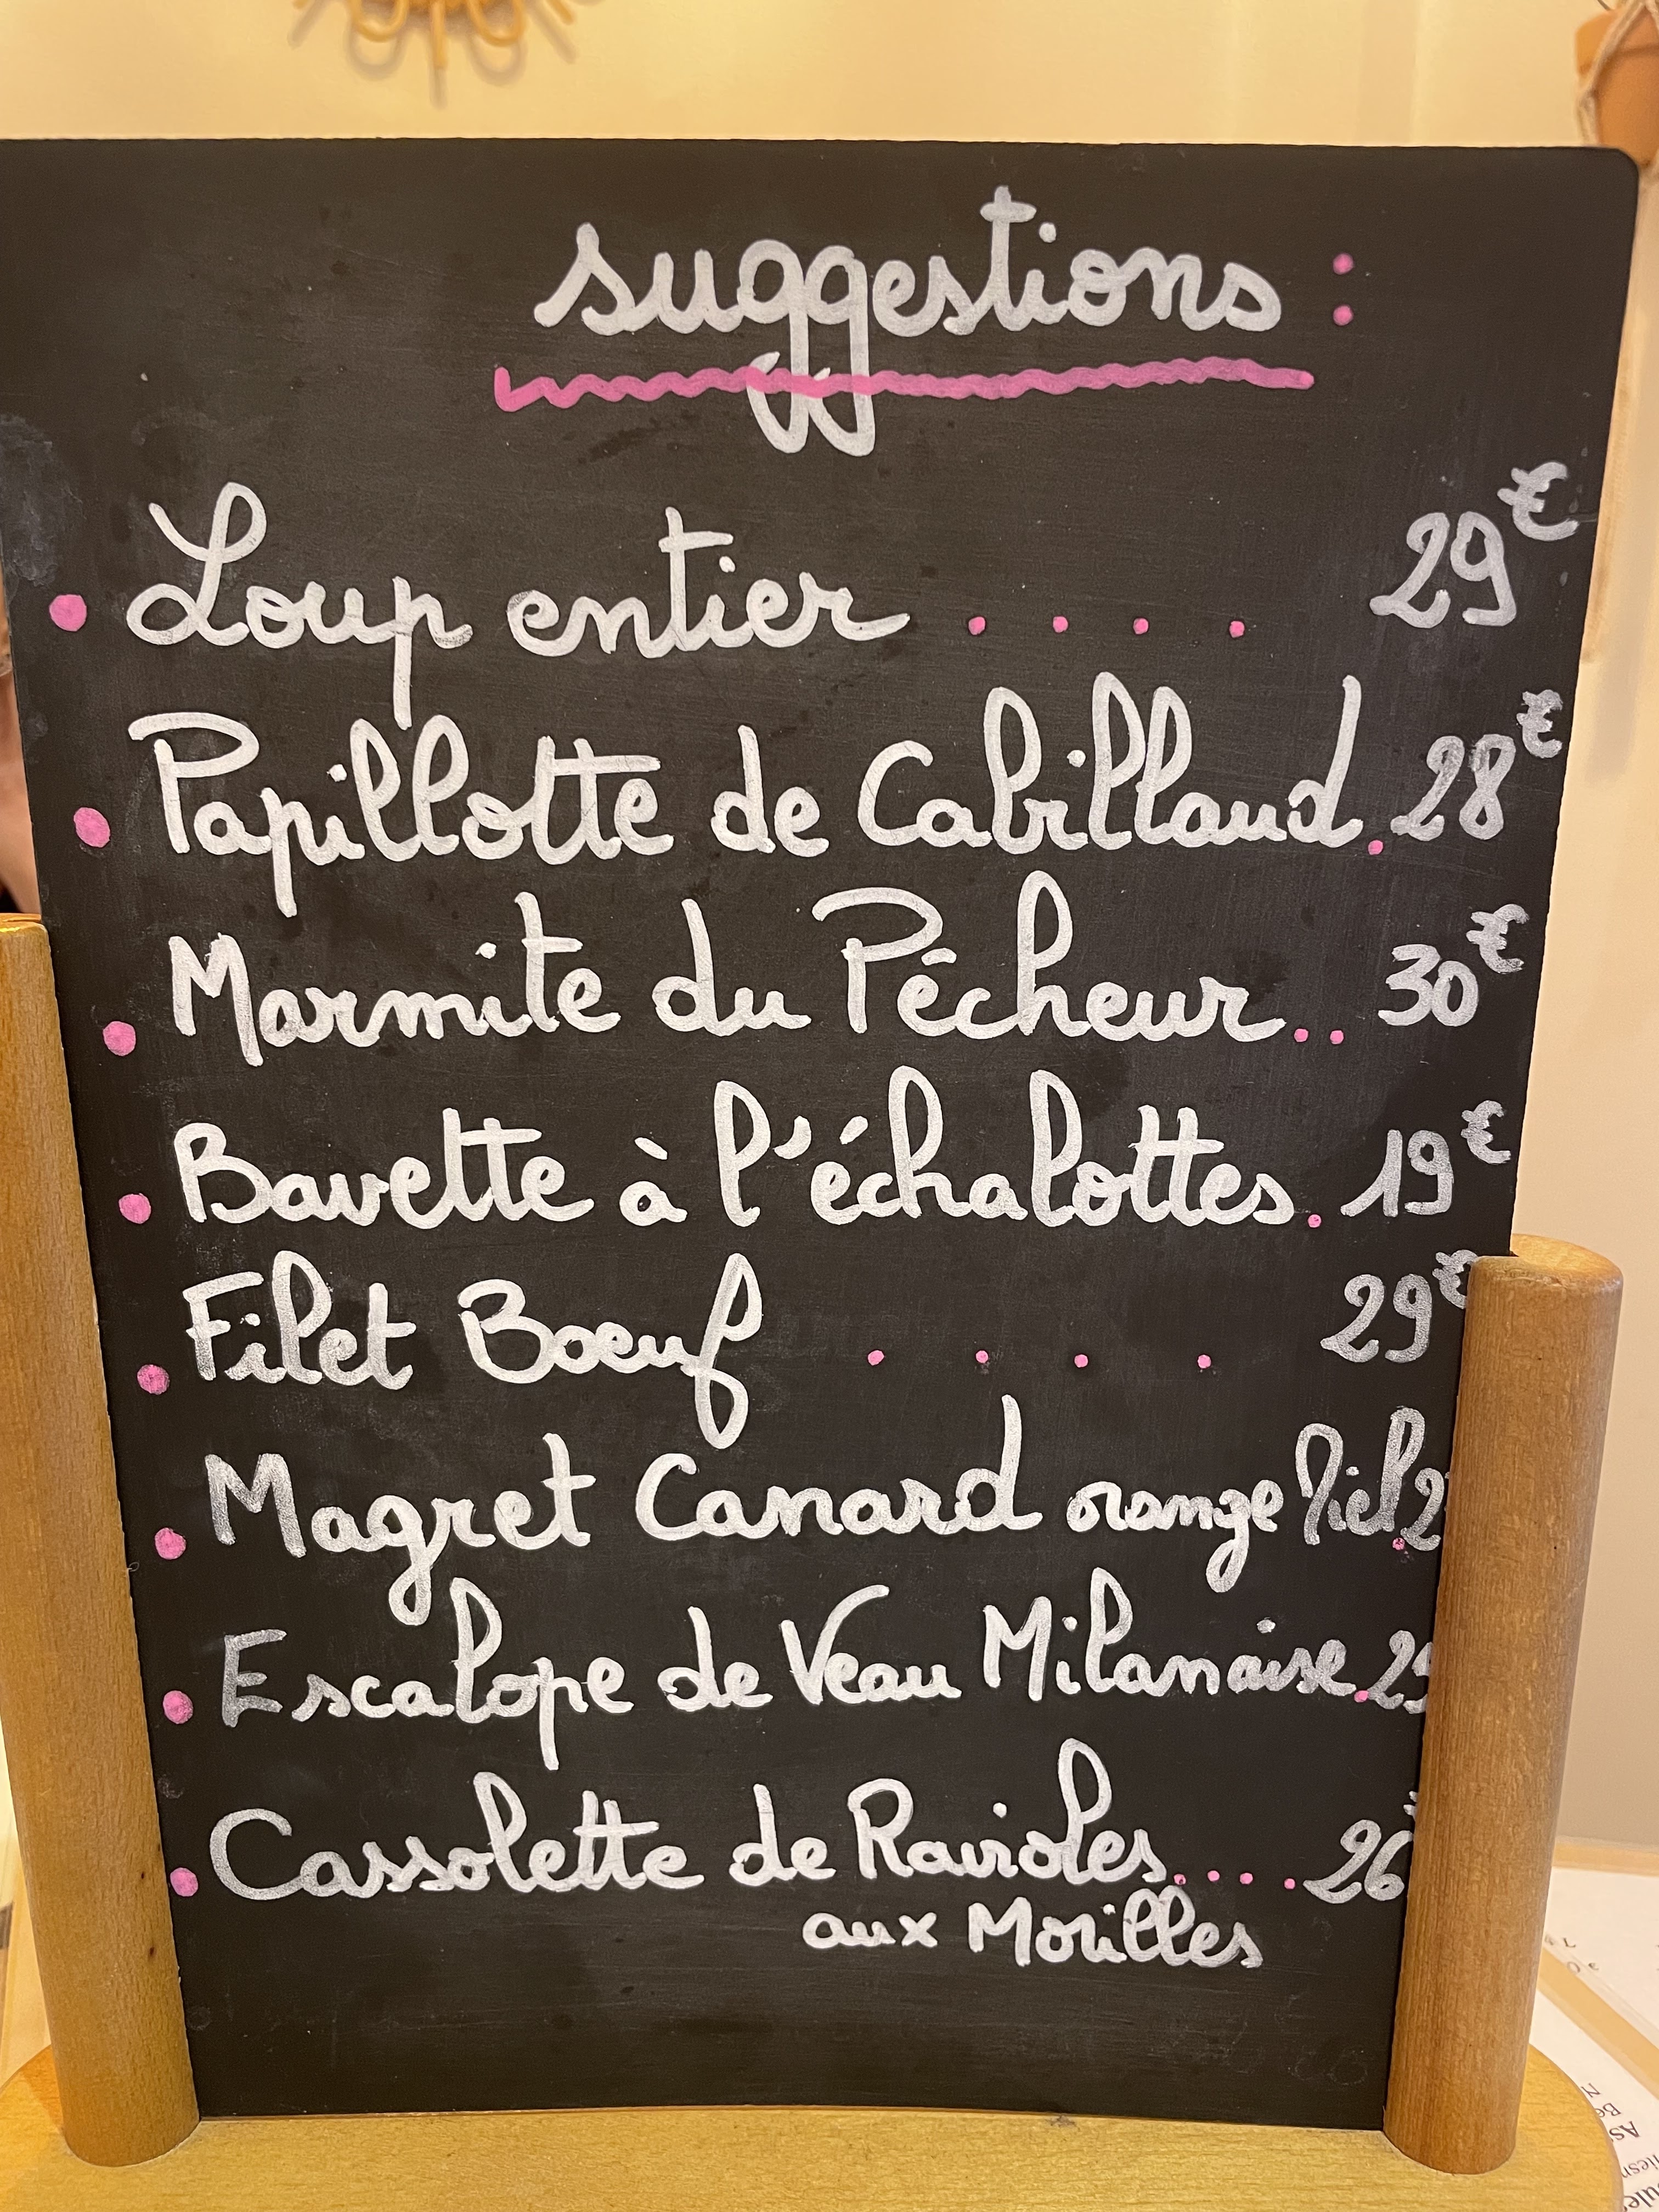 suggestions :
Loup entier .... 29€
Papillotte de Cabillaud . 28€
Marmite du Pêcheur .. 30€
Bavette à l'échalottes . 19€
Filet Boeuf .... 29€
Magret Canard orange Miel . 2
Escalope de Veau Milanaise .
Cassolette de Ravioles .... 26
aux Morilles